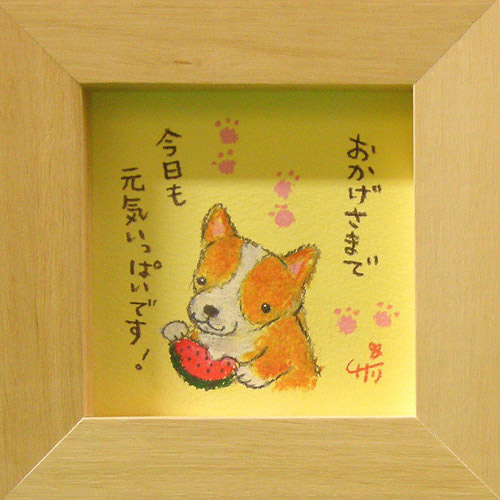 おかげさまで
今日も
元気いっぱいです!